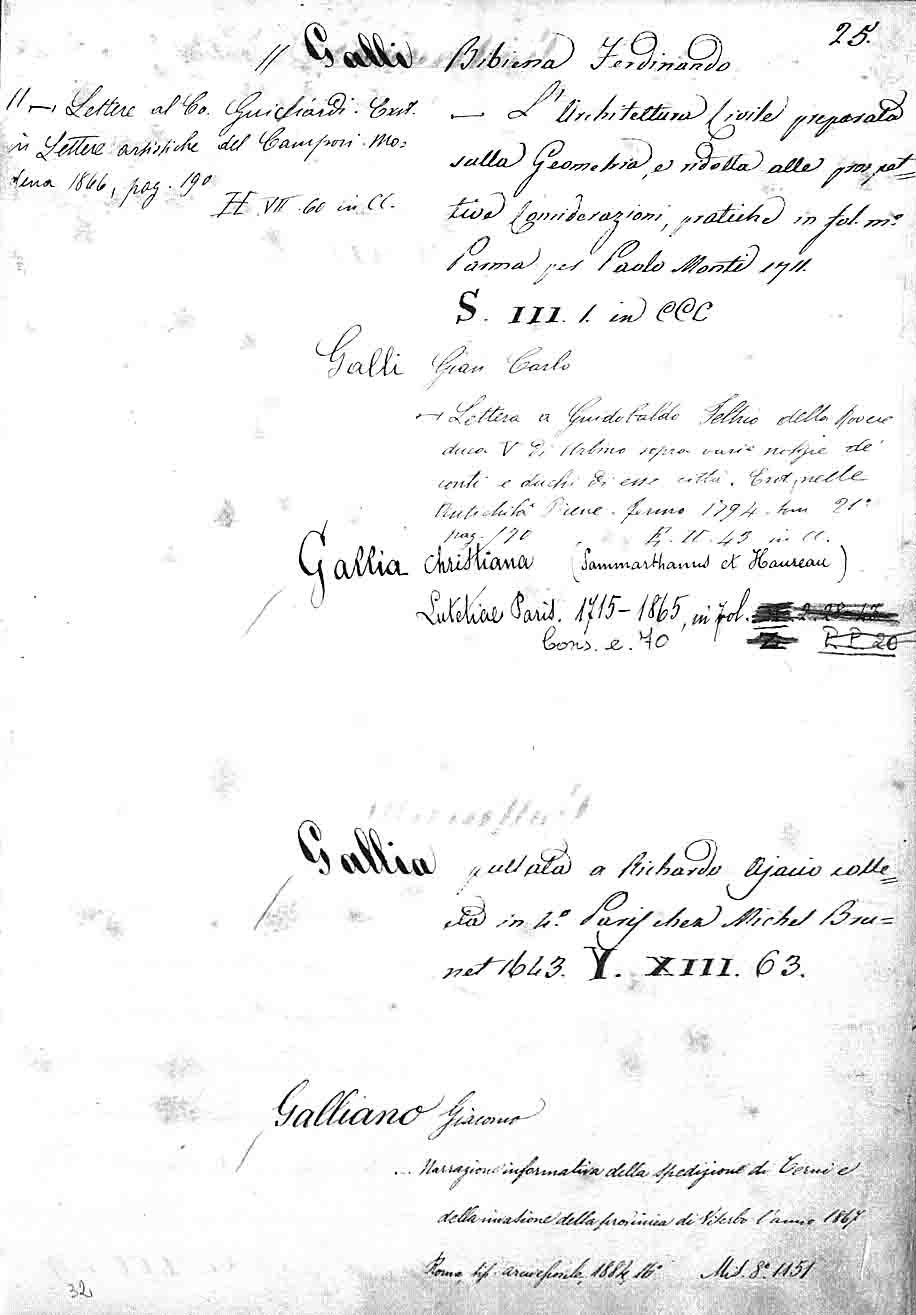 25.
// Galli Bibiena Ferdinando
— L'Architettura Civile preparata
sulla Geometria, e ridotta alle prospet=
tive Considerazioni, pratiche in fol. m.º
Parma per Paolo Monti 1711.
S. III. 1. in CCC
// — Lettere al Co. Guicciardi. Exst.
in Lettere artistiche del Campori. Mo=
dena 1866, pag. 190
H VII 60 in CC.
Galli Gian Carlo
— Lettera a Guidobaldo Feltrio della Rovere
duca V di Urbino sopra varie notizie de'
conti e duchi di esse città. Exst, nelle
Antichità Picene. Fermo 1794. tom 21º
pag. 190 II. 43 in CC.
Gallia Christiana (Sammarthanus et Haureau)
Lutetiae Paris. 1715-1865, in fol.
Cons. e. 70 P P 20
Gallia a Richardo colle=
cta in 4.º Paris chez Michel Bru=
net 1643. Y. XIII. 63.
Galliano Giacomo
... Narrazione informativa della spedizione di Terni e
della invasione della provincia di Viterbo l'anno 1867
Roma, tip. 188 16º Mis. 8º 1151
32